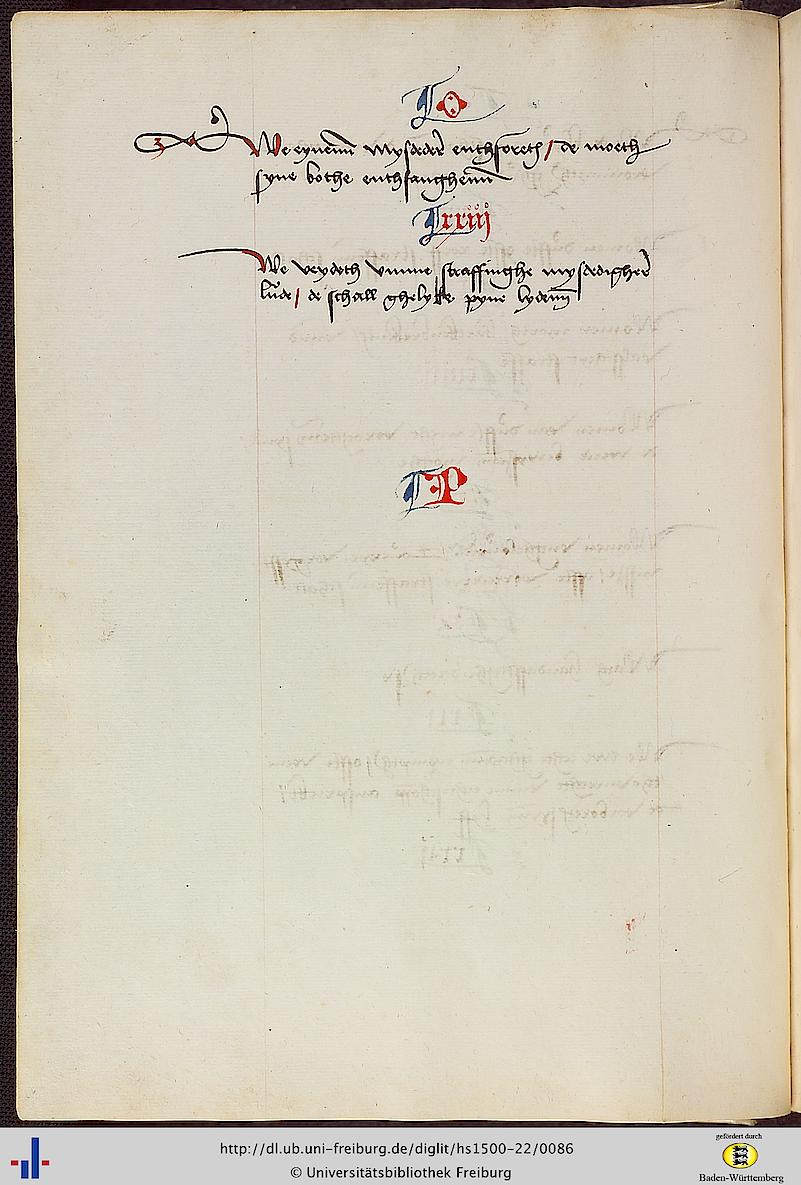 O
We eynenn mysdeder enthforeth / de moeth
syne bothe enthfanghenn
lxxiiij
We veydeth vmme straffinghe mysdedigher
lude / de schall ghelyke pyne lydenn
P
http://dl.ub.uni-freiburg.de/diglit/hs1500-22/0086
© Universitätsbibliothek Freiburg
gefördert durch
Baden-Württemberg